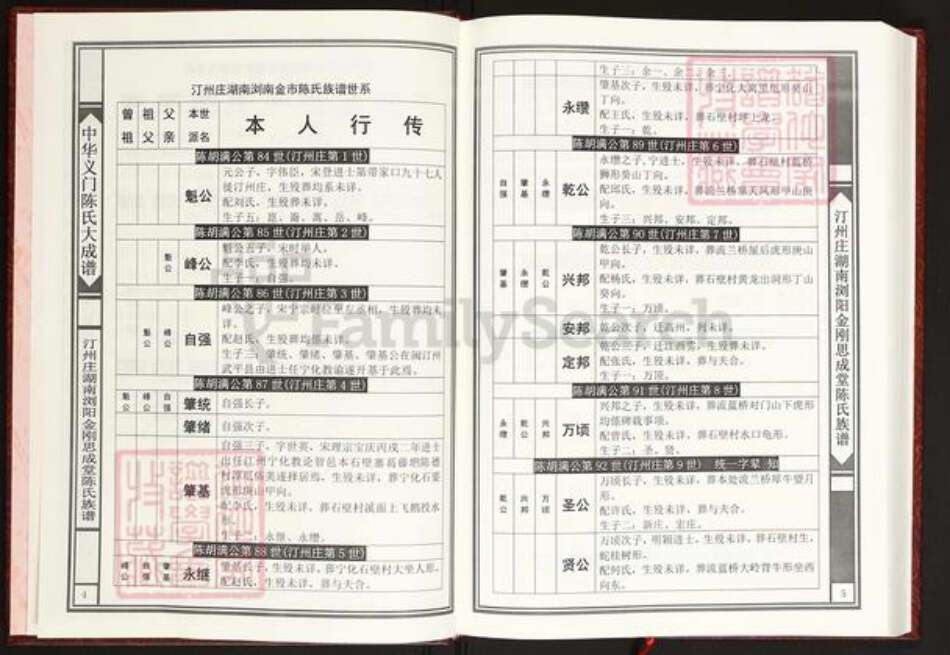 中华义门陈氏大成谱
汀州庄湖南浏阳金刚思成堂陈氏族谱
4
汀州庄湖南浏南金市陈氏族谱世系
曾祖 祖父 父亲 本世派名 本人行传
陈胡满公第84世(汀州庄第1世)
魁公
元公子，字伟臣，宋登进士第带家口九十七人
徙汀州庄，生殁葬均系未详。
配刘氏，生殁葬未详。
生子五：崑、海、嵩、岳、峰。
陈胡满公第85世(汀州庄第2世)
魁公 峰公
魁公五子，宋时举人。
配李氏，生殁葬均未详。
生子一：自强。
陈胡满公第86世(汀州庄第3世)
魁公 峰公 自强
峰公之子，宋宁宗时位至左丞相，生殁葬均未
详。
配赵氏，生殁葬均系未详。
生子三：肇统、肇绪、肇基，肇基公在闽汀州
武平县由进士任宁化教谕遂开基于此焉。
陈胡满公第87世(汀州庄第4世)
魁公 峰公 自强 肇统
自强长子。
肇绪
自强次子。
肇基
自强三子，字世英，宋理宗宝庆丙戌二年进士
配李氏，生殁未详，葬石壁村溪面上飞鹅投水
形。
生子二：永继、永缵。
陈胡满公第88世(汀州庄第5世)
峰公 自强 肇基 永继
肇基长子，生殁未详，葬宁化石壁村大坐人形。
配赵氏，生殁未详，葬与夫合。
生子三：余一、余
永缵
肇基次子，生殁未详，葬宁化大窝里
丁向。
配王氏，生殁未详，葬石壁村坪上龙。
生子一：乾。
陈胡满公第89世(汀州庄第6世)
自强 肇基 永缵 乾公
永缵之子，宁进士，生殁未详，葬石壁村蓝桥
狮形癸山丁向。
配邱氏，生殁未详，葬流兰桥寨天凤形甲山庚
向。
生子三：兴邦、安邦、定邦。
陈胡满公第90世(汀州庄第7世)
肇基 永缵 乾公 兴邦
乾公长子，生殁未详，葬流兰桥屋后虎形庚山
甲向。
配杨氏，生殁未详，葬石壁村黄龙出洞形丁山
癸向。
生子一：万顷。
安邦
乾公次子，迁高州，何未详。
定邦
乾公三子，迁江西雩，生殁葬未详。
配张氏，生殁未详，葬与夫合。
生子一：万顶。
陈胡满公第91世(汀州庄第8世)
永缵 乾公 兴邦 万顷
兴邦之子，生殁未详，葬流蓝桥对门山下虎形
均系碑载事项。
配曾氏，生殁未详，葬石壁村水口龟形。
生子二：圣、贤。
陈胡满公第92世(汀州庄第9世) 统一字辈 知
乾公 兴邦 万顷 圣公
万顷长子，生殁未详，葬本处流兰桥犀牛望月
形。
配许氏，生殁未详，葬与夫合。
生子二：新庄、宏庄。
贤公
万顷次子，明颖进士，生殁未详，葬石壁村生
蛇挂树形。
配何氏，生殁未详，葬流蓝桥大岭背牛形坐西
向东。
汀州庄湖南浏阳金刚思成堂陈氏族谱
5
FamilySearch